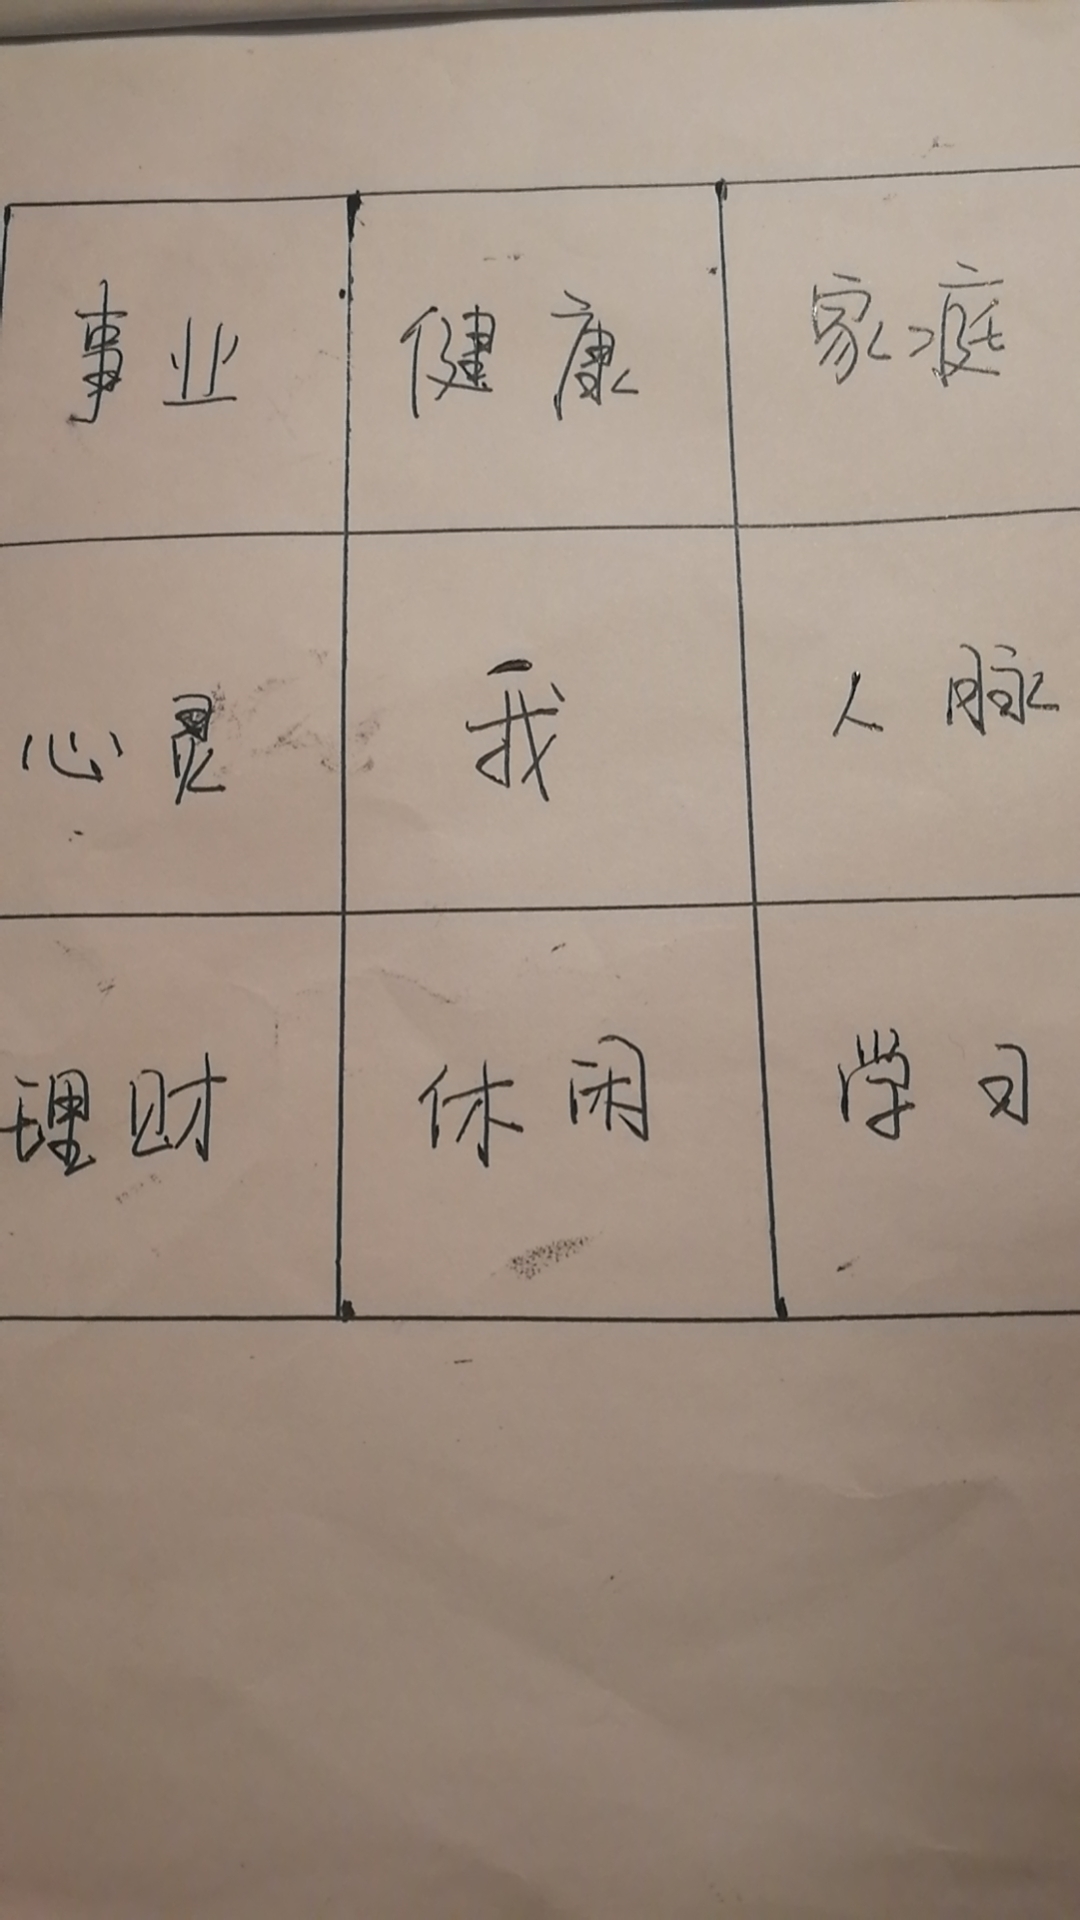 事业 健康 家庭
心灵 我 人脉
理财 休闲 学习